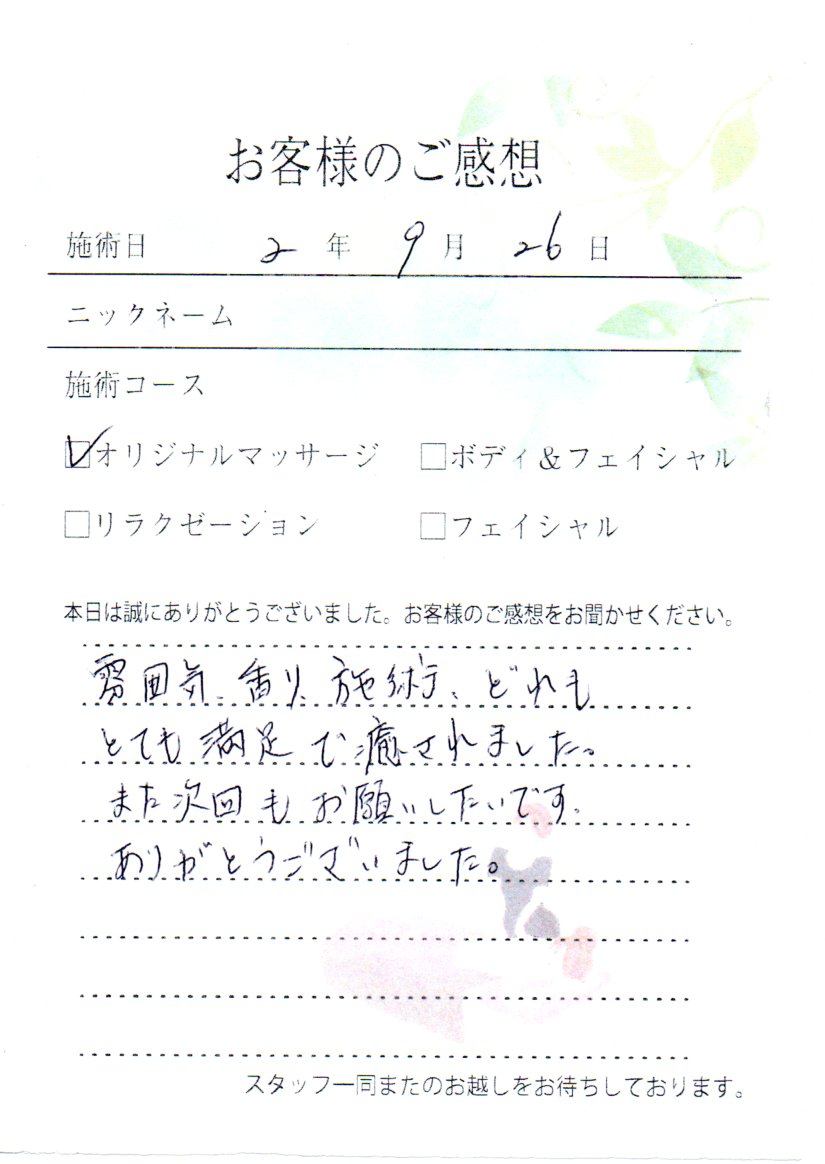 お客様のご感想
施術日 2 年 9 月 26 日
ニックネーム
施術コース
☑オリジナルマッサージ □ボディ&フェイシャル
□リラクゼーション □フェイシャル
本日は誠にありがとうございました。お客様のご感想をお聞かせください。
雰囲気、香り、施術、どれも
とても満足で癒されました。
また次回もお願いしたいです。
ありがとうございました。
スタッフ一同またのお越しをお待ちしております。